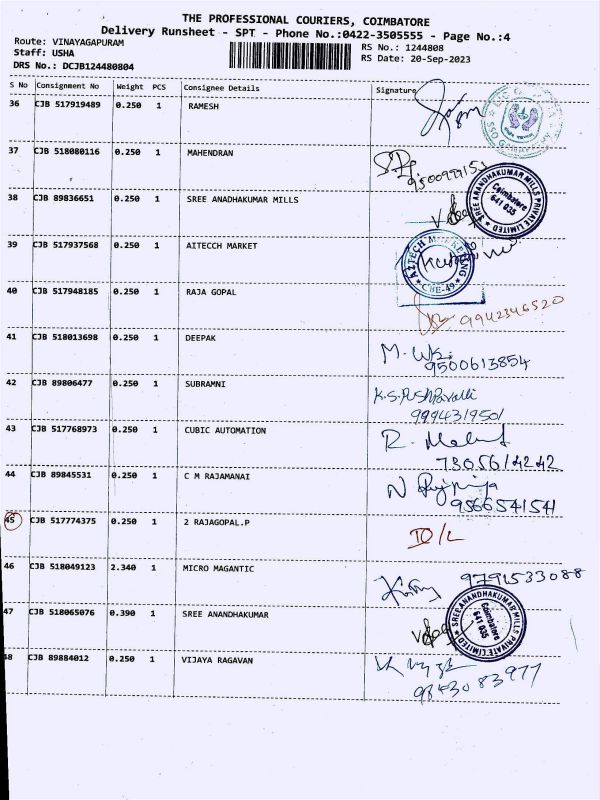 THE PROFESSIONAL COURIERS, COIMBATORE
Delivery Runsheet - SPT - Phone No.:0422-3505555 - Page No.:4
Route: VINAYAGAPURAM
Staff: USHA
DRS No.: DCJB124480804
RS No.: 1244808
RS Date: 20-Sep-2023
S No Consignment No Weight PCS Consignee Details Signature
36 CJB 517919489 0.250 1 RAMESH
37 CJB 518080116 0.250 1 MAHENDRAN
38 CJB 89836651 0.250 1 SREE ANADHAKUMAR MILLS
SREE ANANDHAKUMAR MILLS PRIVATE LIMITED
Coimbatore
641 035
39 CJB 517937568 0.250 1 AITECCH MARKET
AZTECH MARKETING
CBE-49
40 CJB 517948185 0.250 1 RAJA GOPAL 9942346520
41 CJB 518013698 0.250 1 DEEPAK
9500613854
42 CJB 89806477 0.250 1 SUBRAMNI K.S.Pushpavalli
9994319501
43 CJB 517768973 0.250 1 CUBIC AUTOMATION
7305614242
44 CJB 89845531 0.250 1 C M RAJAMANAI
9566541541
45 CJB 517774375 0.250 1 2 RAJAGOPAL.P
46 CJB 518049123 2.340 1 MICRO MAGANTIC 9791533088
47 CJB 518065076 0.390 1 SREE ANANDHAKUMAR
SREE ANANDHAKUMAR MILLS PRIVATE LIMITED
Coimbatore
641 035
48 CJB 89884012 0.250 1 VIJAYA RAGAVAN
9843083977